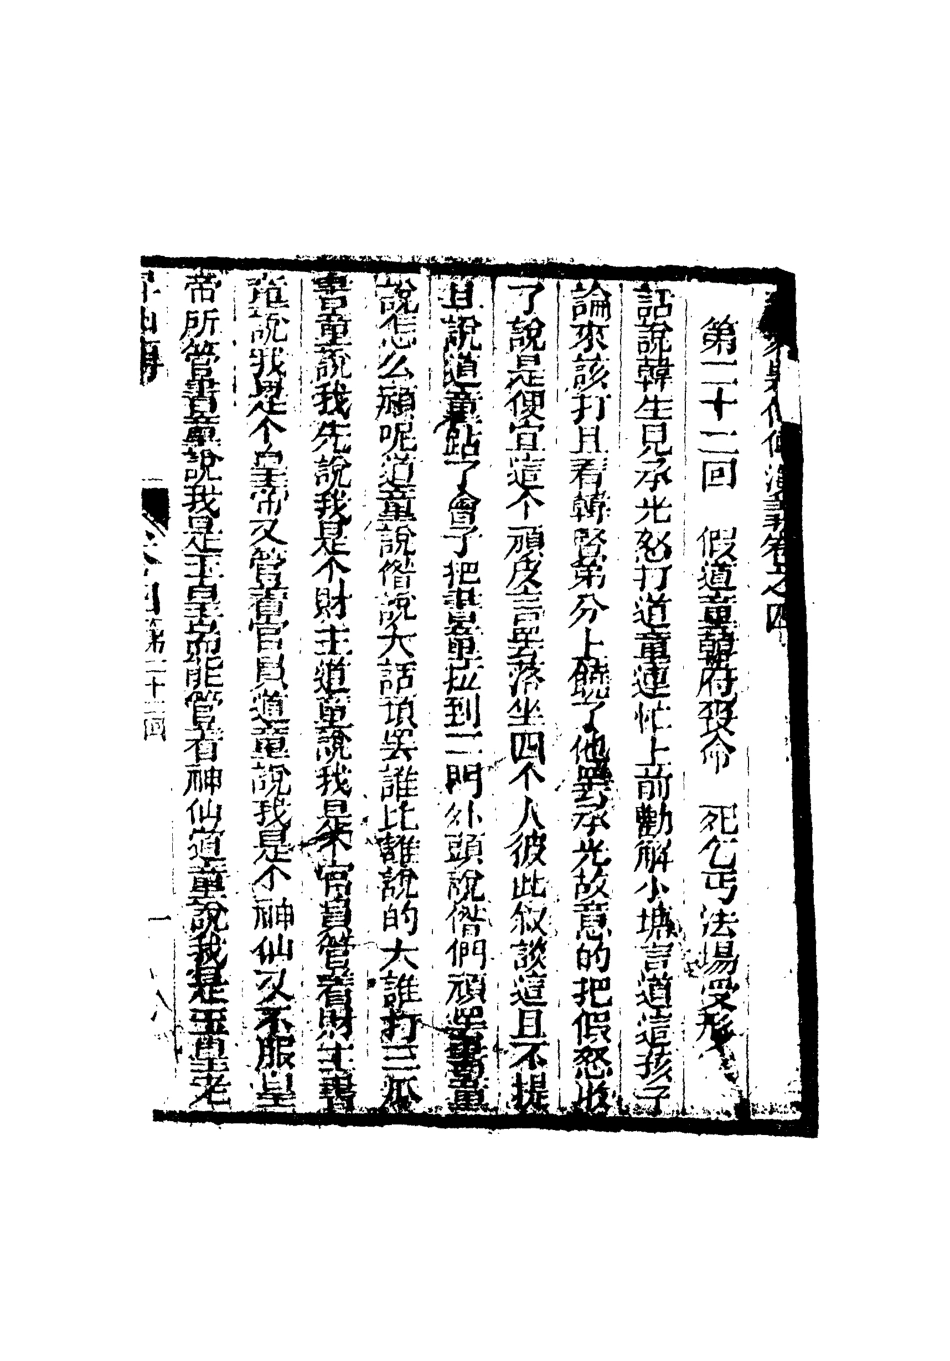 仙演義卷之四
第二十二回　假道童韓府殺命　死乞丐法場受形
話說韓生見承光怒打道童連忙上前勸解小塘言道這孩子
論來該打且看韓賢弟分上饒了他罷承光故意的把假怒收
了說是便宜這个頑皮言罢落坐四个人彼此叙談這且不提
且說道童跕了會子把書童拉到二門外頭說偺們頑罢書童
說怎么頑呢道童說偺說大話頑罢誰比誰說的大誰打三瓜
書童說我先說我是个財主道童說我是个官員管着財主書
童說我是个皇帝又管着官員道童說我是个神仙又不服皇
帝所管書童說我是玉皇爺能管着神仙道童說我是玉皇老
仙傳　卷四　第二十二回　一